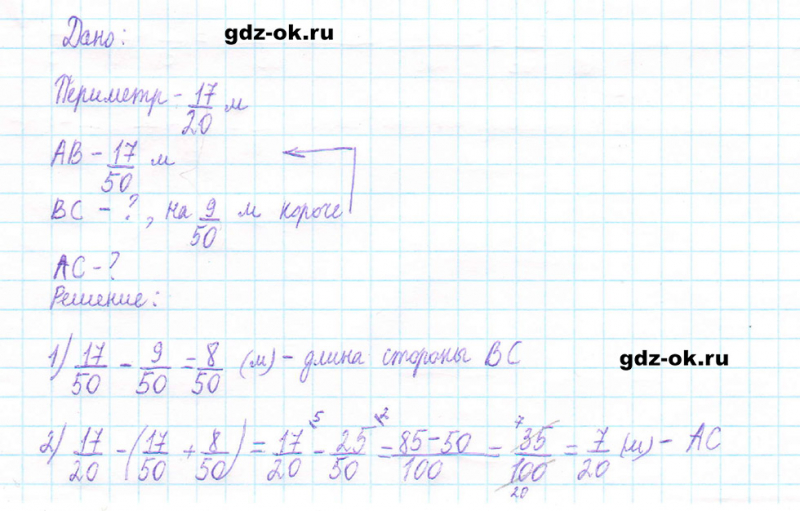 Дано:
gdz-ok.ru
Периметр - 17/20 м
AB - 17/50 м
BC - ?, на 9/50 м короче
AC - ?
Решение:
1) 17/50 - 9/50 = 8/50 (м) - длина стороны BC
gdz-ok.ru
2) 17/20 - (17/50 + 8/50) = 17/20 ⁵ - 25/50 ² = 85-50/100 = 35/100 ⁷/₂₀ = 7/20 (м) - AC